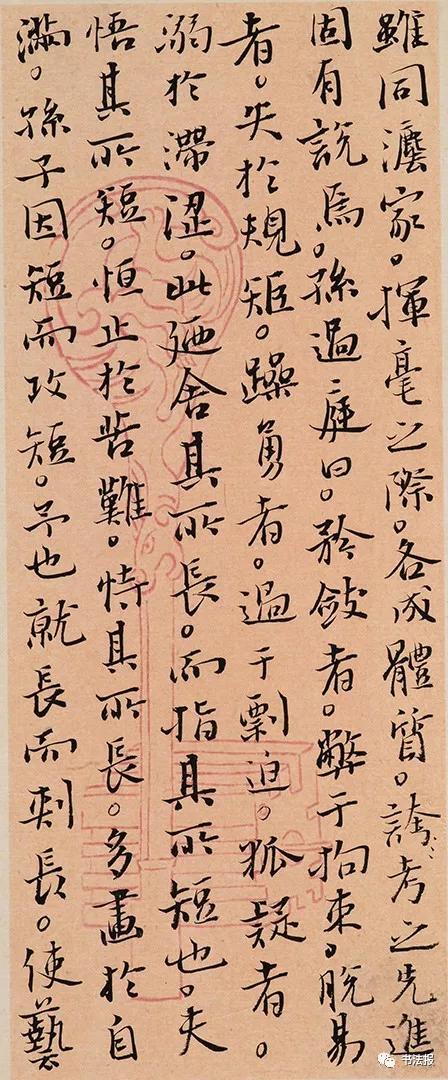 雖同灋家。揮毫之際。各成體質。考之先進
固有說焉。孫過庭曰。矜斂者。弊于拘束。脫易
者。失於規矩。躁勇者。過于剽迫。狐疑者。
溺於滯澀。此廼舍其所長。而指其所短也。夫
悟其所短。恒止於苦難。恃其所長。多畫於自
滿。孫子因短而攻短。予也就長而刺長。使藝
书法报